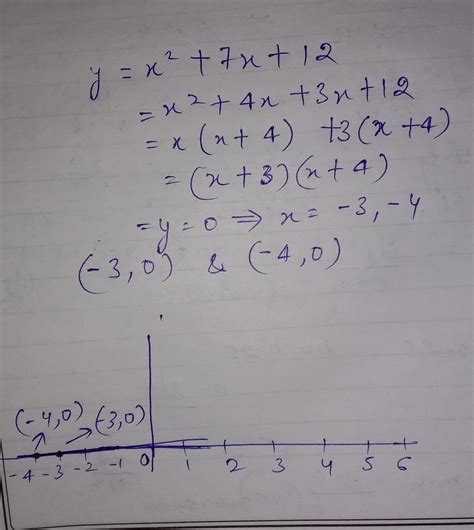 y = x² + 7x + 12
= x² + 4x + 3x + 12
= x (x + 4) + 3 (x + 4)
= (x + 3) (x + 4)
= y = 0 ⇒ x = -3, -4
(-3, 0) & (-4, 0)
(-4,0) (-3,0)
-4 -3 -2 -1 0 1 2 3 4 5 6